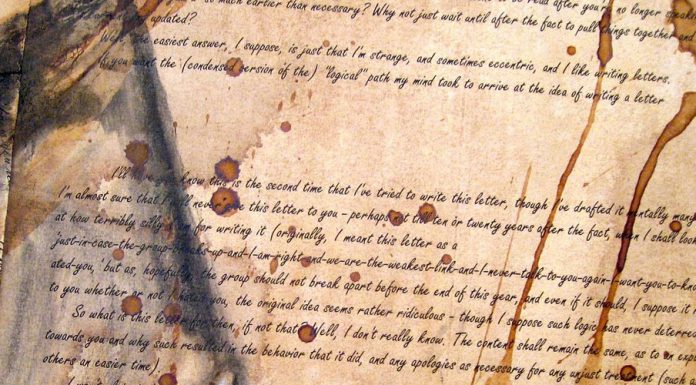 so much earlier than necessary? Why not just wait until after the fact to pull things together and
updated?
easiest answer, I suppose, is just that I'm strange, and sometimes eccentric, and I like writing letters.
you want the (condensed version of the) "logical" path my mind took to arrive at the idea of writing a letter
I'll know this is the second time that I've tried to write this letter, though I've drafted it mentally
I'm almost sure that I never give this letter to you - perhaps not till ten or twenty years after the fact, when I shall
at how terribly silly for writing it (originally, I meant this letter as a
'just-in-case-the-group-breaks-up-and-I-am-right-and-we-are-the-weakest-link-and-I-never-talk-to-you-again-I-want-you-to-know
ated-you,' but as, hopefully, the group should not break apart before the end of this year, and even if it should, I suppose it
to you whether or not I you, the original idea seems rather ridiculous - though I suppose such logic has never deterred
So what is this letter for then, if not that? Well, I don't really know. The content shall remain the same, as to an
towards you and why such resulted in the behavior that it did, and any apologies as necessary for any unjust treatment (such
others an easier time).